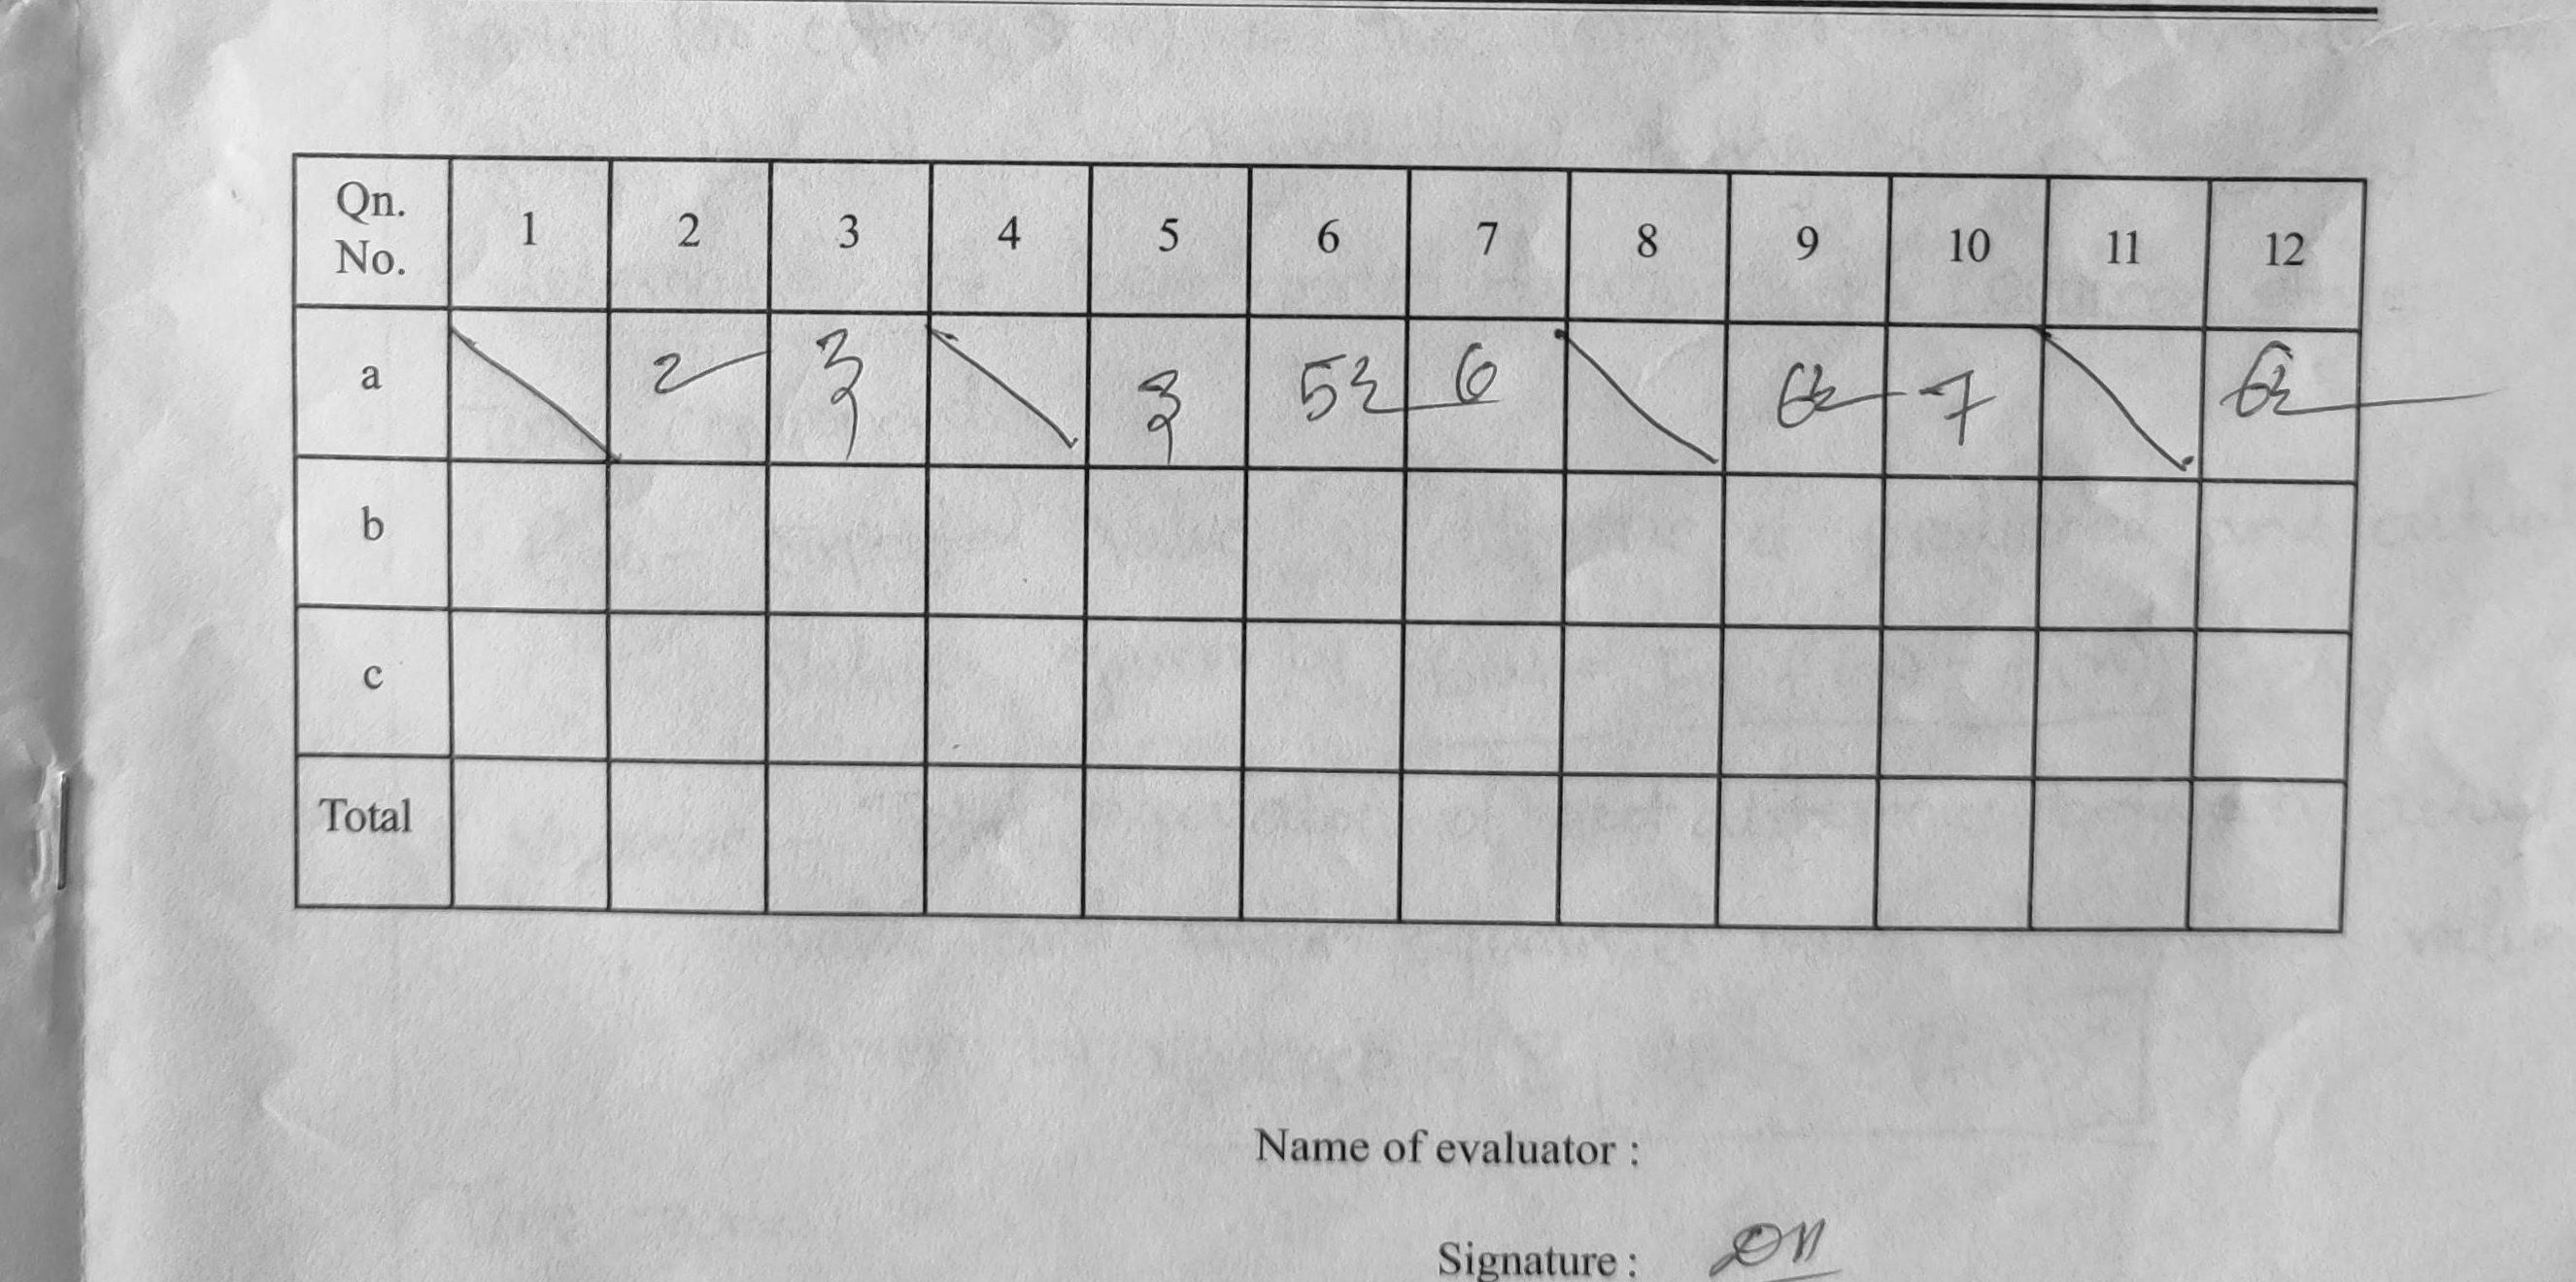 Qn. No. 1 2 3 4 5 6 7 8 9 10 11 12
a 2 3 3 5½ 6 6½ 7 6½
b
c
Total
Name of evaluator :
Signature :